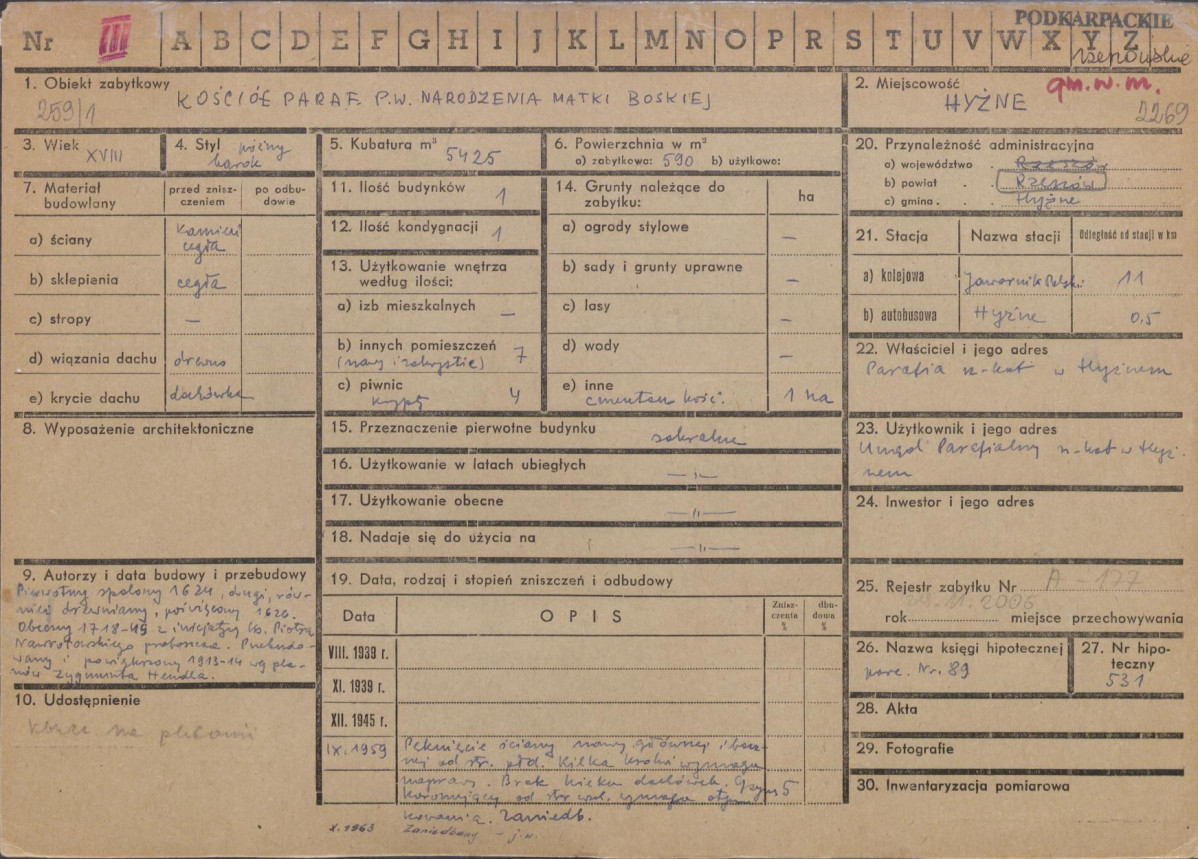 Nr III A B C D E F G H I J K L M N O P R S T U V W X Y Z
PODKARPACKIE
rzeszowskie
1. Obiekt zabytkowy
259/1
KOŚCIÓŁ PARAF. P.W. NARODZENIA MATKI BOSKIEJ
2. Miejscowość
gm.w.m.
HYŻNE
2269
3. Wiek
XVIII
4. Styl późny
barok
5. Kubatura m³
5425
6. Powierzchnia w m²
a) zabytkowa: 590 b) użytkowa:
20. Przynależność administracyjna
a) województwo . Rzeszów
b) powiat . . Rzeszów
c) gmina . . Hyżne
7. Materiał
budowlany
przed znisz-
czeniem
po odbu-
dowie
a) ściany
kamień
cegła
b) sklepienia cegła
c) stropy —
d) wiązania dachu drewno
e) krycie dachu dachówka
11. Ilość budynków 1
12. Ilość kondygnacji 1
13. Użytkowanie wnętrza
według ilości:
a) izb mieszkalnych —
b) innych pomieszczeń
(nawy i zakrystie) 7
c) piwnic
krypty 4
14. Grunty należące do
zabytku:
ha
a) ogrody stylowe —
b) sady i grunty uprawne —
c) lasy —
d) wody —
e) inne
cmentarz kość. 1 ha
21. Stacja Nazwa stacji Odległość od stacji w km
a) kolejowa Jawornik Polski 11
b) autobusowa Hyżne 0,5
22. Właściciel i jego adres
Parafia rz-kat w Hyżnem
8. Wyposażenie architektoniczne
15. Przeznaczenie pierwotne budynku sakralne
16. Użytkowanie w latach ubiegłych —"—
17. Użytkowanie obecne —"—
18. Nadaje się do użycia na —"—
23. Użytkownik i jego adres
Urząd Parafialny rz-kat w Hyż-
nem
24. Inwestor i jego adres
9. Autorzy i data budowy i przebudowy
Pierwotny spalony 1624, drugi, rów-
nież drewniany, poświęcony 1626.
Obecny 1718-45 z inicjatywy ks. Piotra
Nawrotowskiego proboszcza. Przebudo-
wany i powiększony 1913-14 wg pla-
nów Zygmunta Hendla.
10. Udostępnienie
19. Data, rodzaj i stopień zniszczeń i odbudowy
Data OPIS
Znisz-
czenia
%
dbu-
dowa
%
VIII. 1939 r.
XI. 1939 r.
XII. 1945 r.
IX.1959 Pęknięcie ściany nawy głównej i bocz-
nej od str. płd. Kilka krokwi wymaga
naprawy. Brak kilku dachówek. Gzyms 5
koronujący od str wsch. wymaga otyn-
kowania. Zaniedb.
X.1963 Zaniedbany – j.w.
25. Rejestr zabytku Nr A-177
29.11.2006
rok miejsce przechowywania
26. Nazwa księgi hipotecznej
parc. Nr. 89
27. Nr hipo-
teczny
531
28. Akta
29. Fotografie
30. Inwentaryzacja pomiarowa